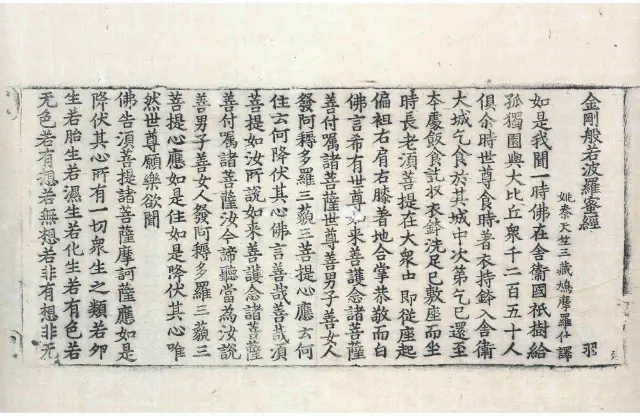 金剛般若波羅蜜經 羽
姚秦天竺三藏鳩摩羅什譯
如是我聞一時佛在舍衛國祇樹給
孤獨園與大比丘衆千二百五十人
俱尒時世尊食時著衣持鉢入舍衛
大城乞食於其城中次第乞已還至
本處飯食訖収衣鉢洗足已敷座而坐
時長老須菩提在大衆中即從座起
偏袒右肩右膝著地合掌恭敬而白
佛言希有世尊如來善護念諸菩薩
善付囑諸菩薩世尊善男子善女人
發阿耨多羅三藐三菩提心應云何
住云何降伏其心佛言善哉善哉須
菩提如汝所説如來善護念諸菩薩
善付囑諸菩薩汝今諦聽當為汝説
善男子善女人發阿耨多羅三藐三
菩提心應如是住如是降伏其心唯
然世尊願樂欲聞
佛告須菩提諸菩薩摩訶薩應如是
降伏其心所有一切衆生之類若卵
生若胎生若濕生若化生若有色若
无色若有想若無想若非有想非无